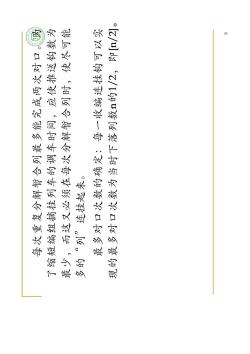 每次重复分解暂合列最多能完成两次对口。为
了缩短编组摘挂列车的调车时间，应使推送钩数为
最少，而这又必须在每次分解暂合列时，使尽可能
多的“列”连挂起来。
最多对口次数的确定：每一收编连挂钩可以实
现的最多对口次数为当时下落列数n的1/2，即[n/2]。